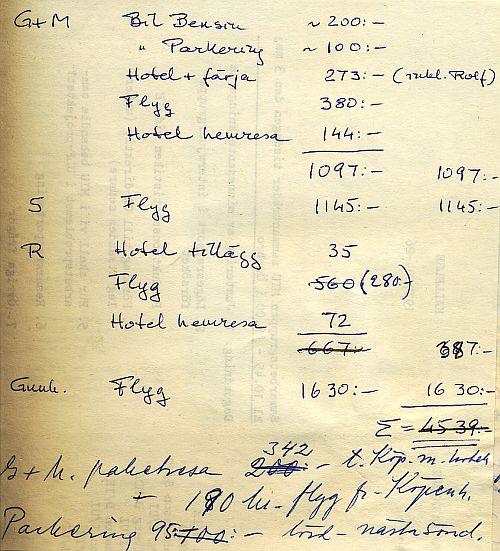 G+M Bil Bensin ~ 200:-
" Parkering ~ 100:-
Hotel + färja 273:- (inkl. Rolf)
Flyg 380:-
Hotel hemresa 144:-
1097:- 1097:-
S Flyg 1145:- 1145:-
R Hotel tillägg 35
Flyg 560 (280:-)
Hotel hemresa 72
667:- 387:-
Gunh. Flyg 1630:- 1630:-
Σ = 4539:-
342
G+M. paketresa 200:- t. Köp. m. hotell
+ 180 kr - flyg fr. Köpenh.
Parkering 95 100:- lörd - nästa sönd.